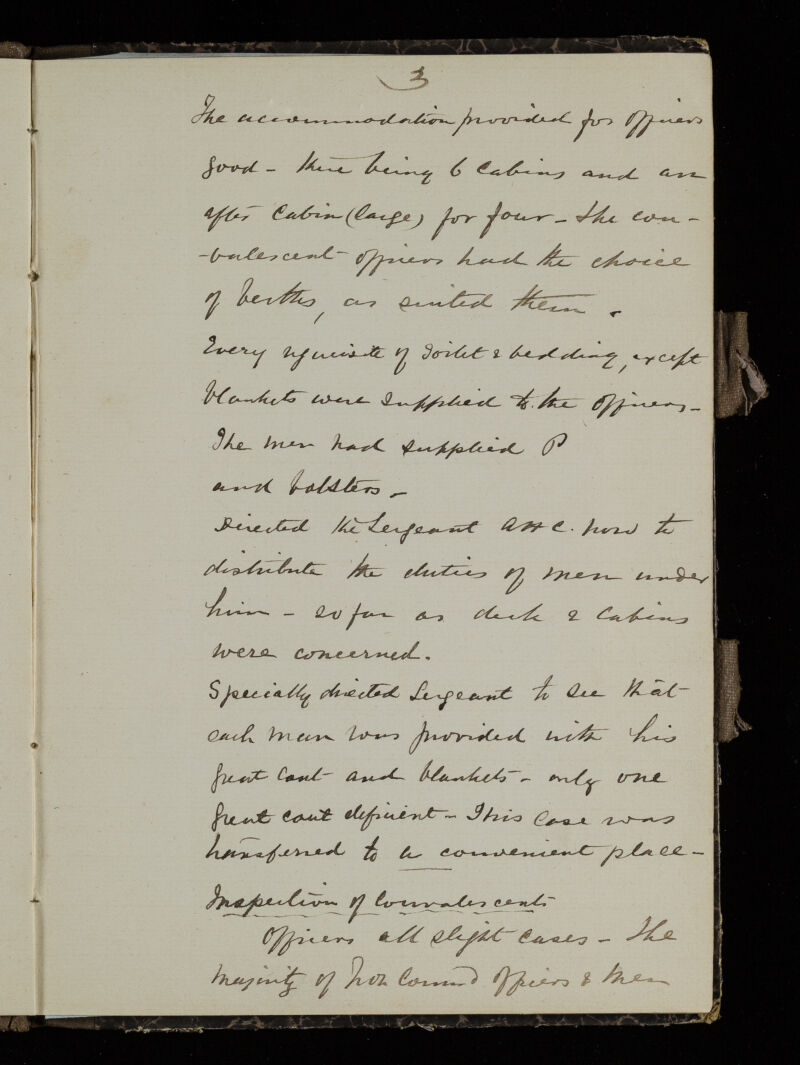 3
The accommodation provided for Officers
good - there being 6 Cabins and an
after Cabin (large) for four - the con-
-valescent officers had the choice
of berths, as suited them.
Every requisite of Toilet & bedding, except
blankets were supplied to the Officers -
The men had supplied P
and bolsters -
Directed the Sergeant A H C. how to
distribute the duties of men under
him - so far as deck & Cabins
were concerned.
Specially directed Sergeant to see that
each man was provided with his
great Coat and blankets - only one
great coat deficient - This Case was
transferred to a convenient place -
Inspection of Convalescents
Officers all slight cases - The
majority of Non Commd Officers & Men